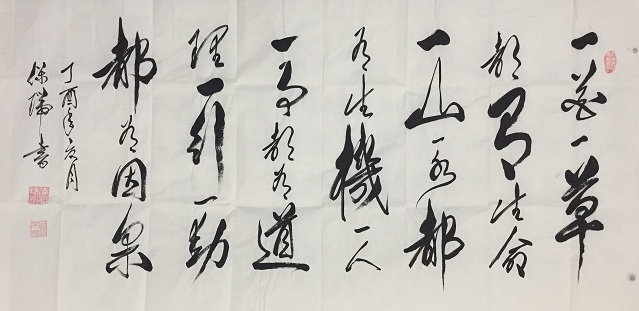 一花一草
都有生命
一山一水都
有生機一人
一事都有道
理一行一動
都有因果
丁酉年六月
保瑞書